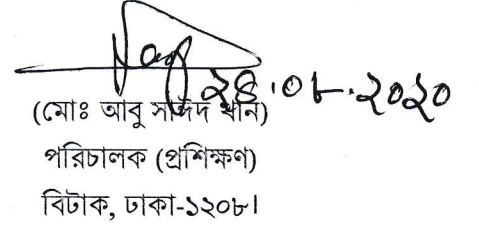 ২৪.০৮.২০২০
(মোঃ আবু সাঈদ খান)
পরিচালক (প্রশিক্ষণ)
বিটাক, ঢাকা-১২০৮।